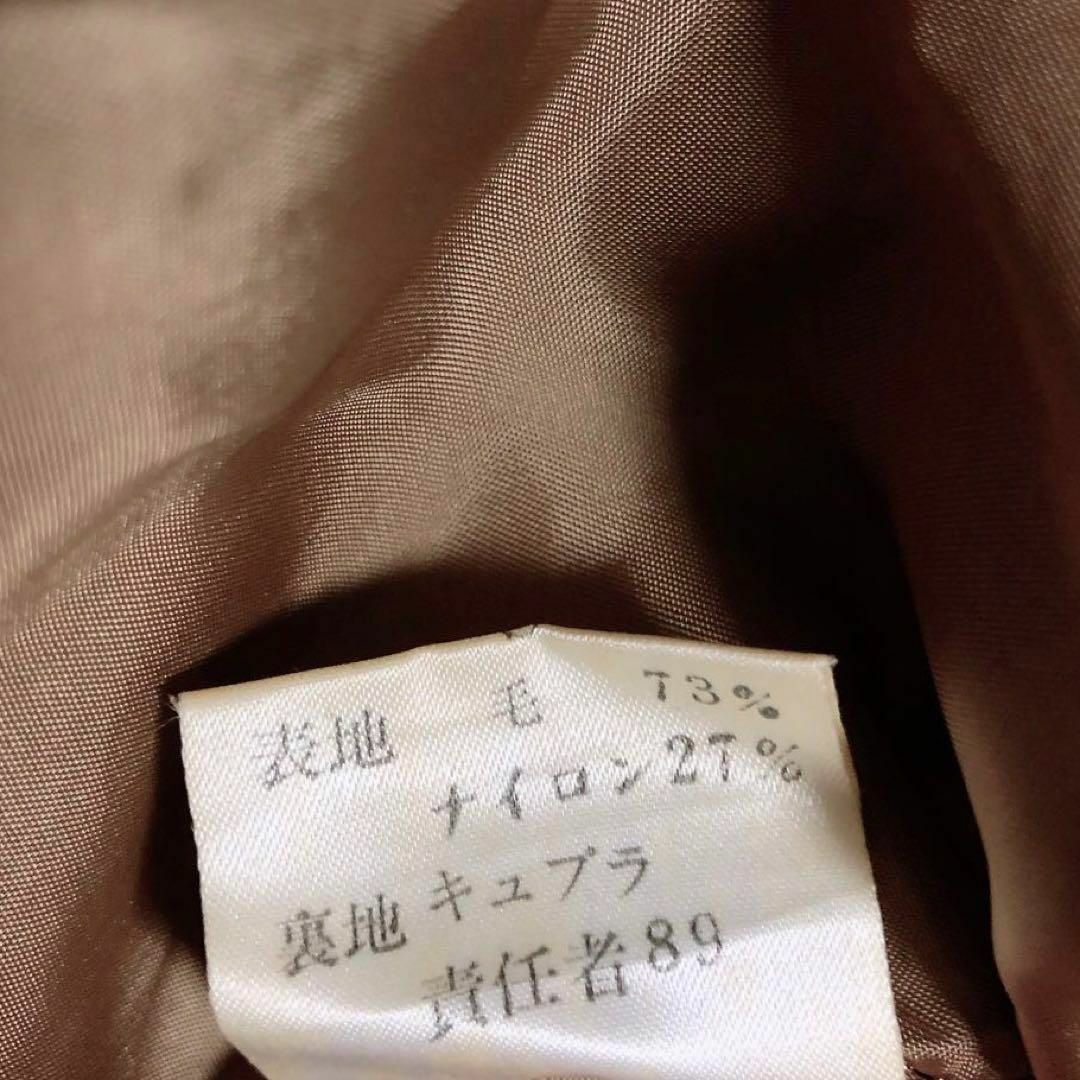 表地 毛 73%
ナイロン27%
裏地 キュプラ
責任者89